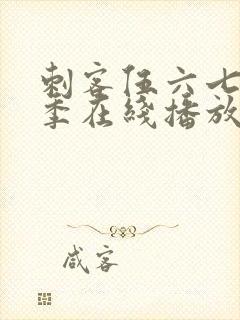 刺客伍六七
季在线播放
咸客